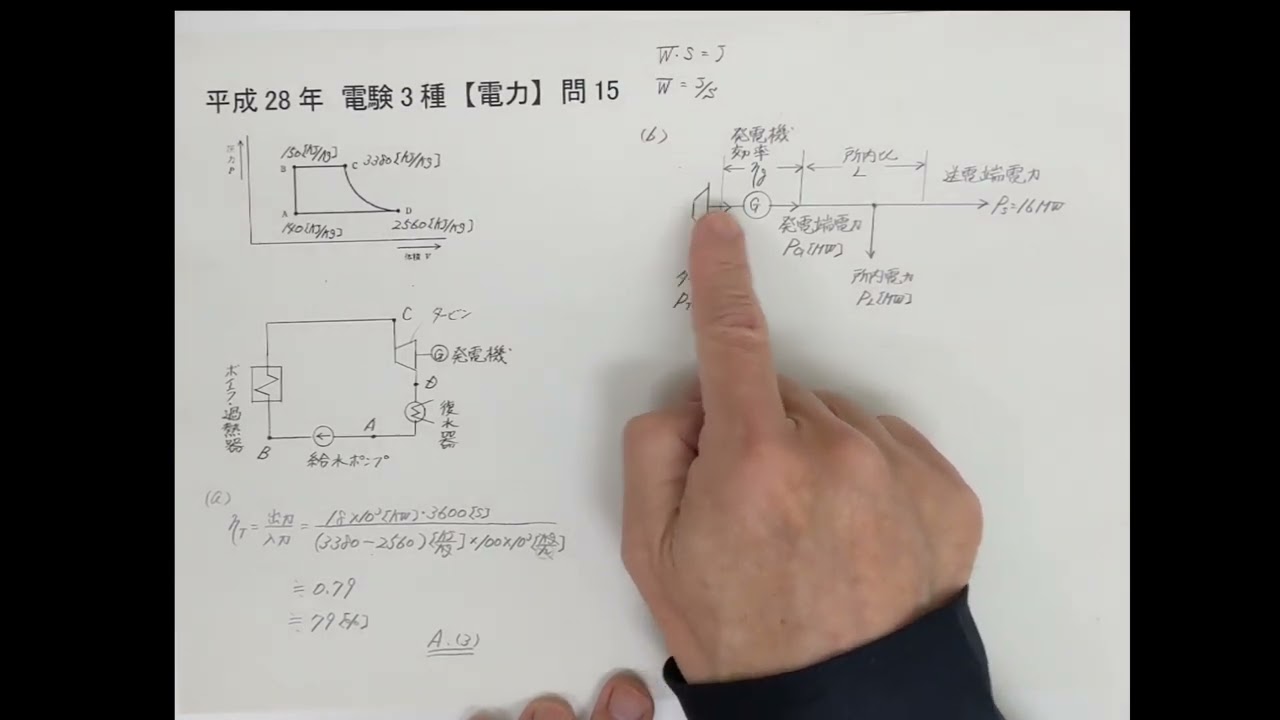 平成28年 電験3種【電力】問15
W・S=J
W=J/S
圧力P
150[kJ/kg]
B
C
3380[kJ/kg]
A
D
140[kJ/kg]
2560[kJ/kg]
体積V
C
タービン
G
発電機
D
ボイラ・過熱器
復水器
A
B
給水ポンプ
(a)
ηT=出力/入力=18×10³[kW]・3600[S]/(3380-2560)[kJ/kg]×100×10³[kg/h]
≒0.79
≒79[%]
A.(3)
(b)
発電機
効率
ηg
所内比
L
送電端電力
G
Ps=16MW
発電端電力
PG[MW]
所内電力
PL[MW]
タ
PT